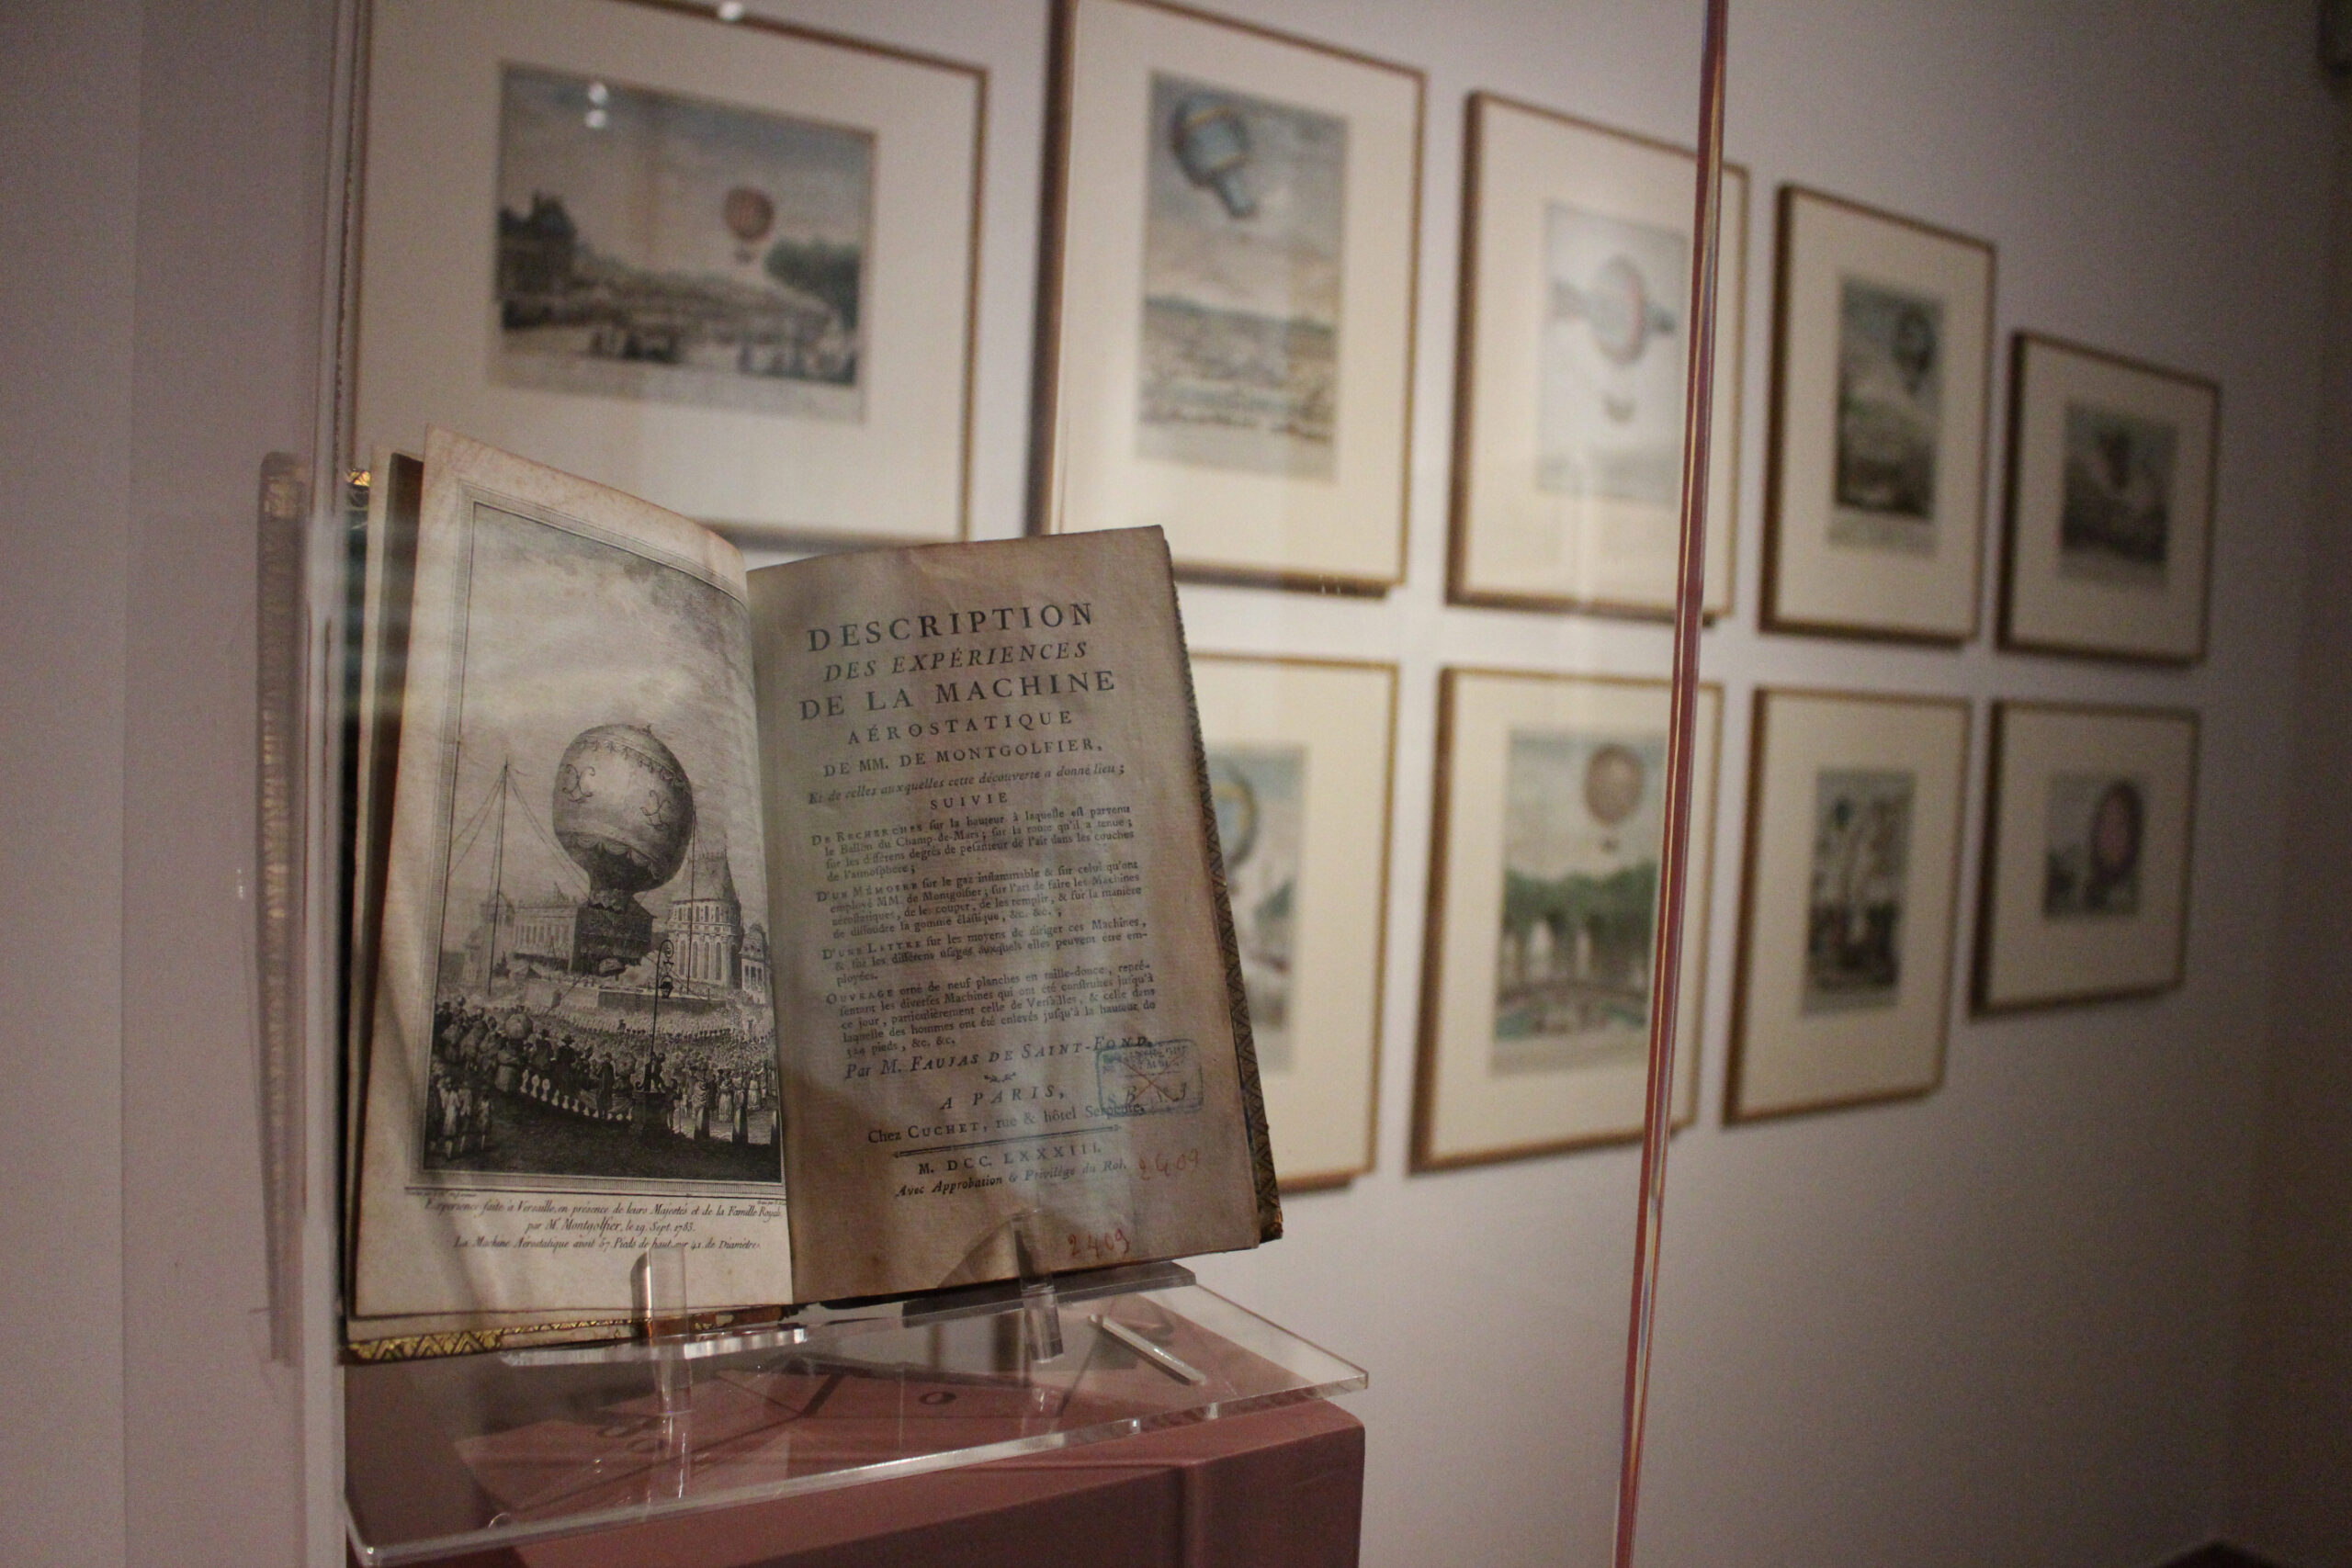 Expérience faite à Versailles, en présence de leurs Majestés et de la Famille Royale,
par M. Montgolfier, le 19. Sept. 1783.
La Machine Aérostatique avoit 57. Pieds de haut, sur 41. de Diamètre.
DESCRIPTION
DES EXPÉRIENCES
DE LA MACHINE
AÉROSTATIQUE
DE MM. DE MONTGOLFIER,
Et de celles auxquelles cette découverte a donné lieu ;
SUIVIE
DE RECHERCHES ſur la hauteur à laquelle eſt parvenu
le Ballon du Champ-de-Mars ; ſur la route qu'il a tenue ;
ſur les différens degrés de peſanteur de l'air dans les couches
de l'atmoſphère ;
D'UN MÉMOIRE ſur le gaz inflammable & ſur celui qu'ont
employé MM. de Montgolfier ; ſur l'art de faire les Machines
aéroſtatiques, de les couper, de les remplir, & ſur la manière
de diſſoudre la gomme élaſtique, &c. &c. ;
D'UNE LETTRE ſur les moyens de diriger ces Machines,
& ſur les différens uſages auxquels elles peuvent être em-
ployées.
OUVRAGE orné de neuf planches en taille-douce, repré-
ſentant les diverſes Machines qui ont été conſtruites juſqu'à
ce jour, particulièrement celle de Verſailles, & celle dans
laquelle des hommes ont été enlevés juſqu'à la hauteur de
324 pieds, &c. &c.
Par M. FAUJAS DE SAINT-FOND.
A PARIS,
Chez CUCHET, rue & hôtel Serpente.
M. DCC. LXXXIII.
Avec Approbation & Privilége du Roi.
2409
2409